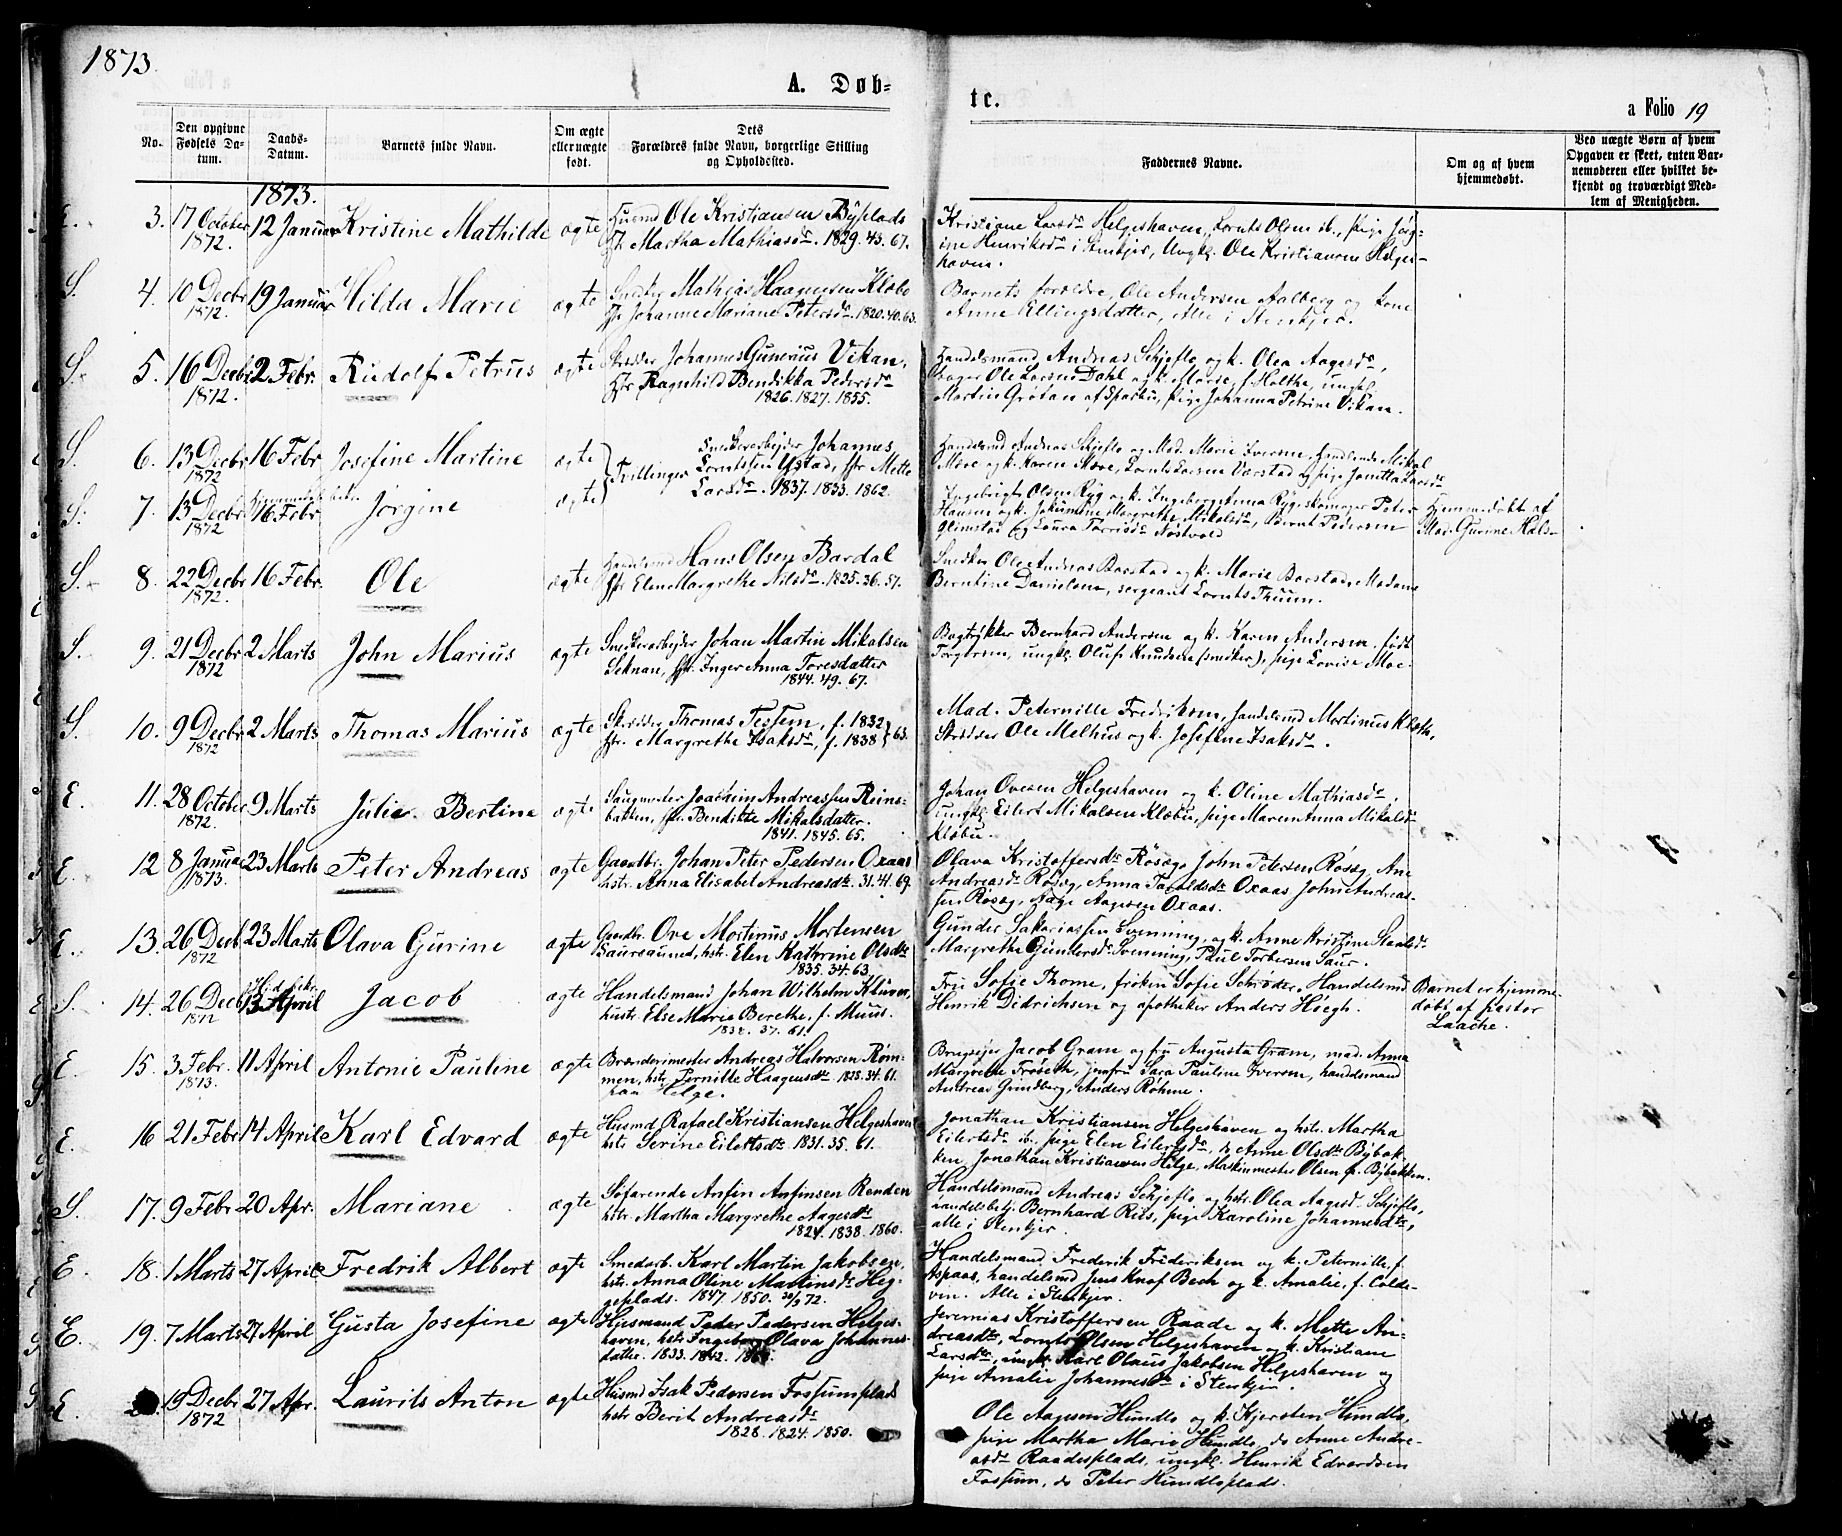 1873.
A. Døb=
te.
a Folio 19
No.
Den opgivne
Fødsels Da-
tum.
Daabs-
Datum.
Barnets fulde Navn.
Om ægte
eller uægte
født.
Dets
Forældres fulde Navn, borgerlige Stilling
og Opholdssted.
Faddernes Navne.
Om og af hvem
hjemmedøbt.
Ved uægte Børn af hvem
Opgaven er skeet, enten Bar-
nemoderen eller hvilket be-
kjendt og troværdigt Med-
lem af Menigheden.
1873.
3. 17 October 12 Januar Kristine Mathilde ægte Husmd Ole Kristiansen Byplads
1872. Martha Mathiasdr. 1829. 43. 67.
Kristiane Larsdr Helgeshaven, Lornts Olsen ib., pige Jørg-
ine Henriksdr i Stenkjer, Ungk. Ole Kristiansen Helges-
haven.
S. 4. 10 Decbr 19 Januar Hilda Marie ægte Snedker Mathias Haagensen Klæbo
1872. Johanne Mariane Petersdr. 1820. 40. 63.
Barnets forældre, Ole Andersen Aalberg og kone
Anne Ellingsdatter, Alle i Stenkjer.
S. 5. 16 Decbr 2 Febr. Rudolf Petrus ægte Skrædder Johannes Gunerius Vikan,
1872. Ragnhild Bendikka Pedersdr
1826. 1827. 1855.
Handelsmand Andreas Schjeflo og k. Olea Aagesdr,
Bager Ole Larsen Dahl og k. Marse, f. Holthe, ungk.
Martin Grøtan af Sparbu, pige Johanna Petrine Vikan.
S. 6. 13 Decbr 16 Febr Josefine Martine ægte Tvillinger Snedkerarbejder Johannes
1872 Lorntssen Ystad, Mette
Larsdr. 1837. 1833. 1862.
Handelsmd Andreas Schjeflo og Mad. Marie Iversen, Handlende Mikal
Møre og k. Karen Møre, Lornts Larsen Værstad og pige Jonetta Larsdr
S. 7. 13 Decbr 16 Febr Jørgine ægte
1872
Ingebrigt Olsen Ryg og k. Ingeborg Anna Ryg, skomager Peter
Hansen og k. Jokumine Margrethe Mikalsdr, Bernt Pedersen
Glimstad og Laura Nøstvold
Hjemmedøbt af
Mad. Gurine Hals-
S. 8. 22 Decbr 16 Febr. Ole ægte Handelsmd Hans Olsen Bardal
1872. Elen Margrethe Nilsdr. 1825. 36. 57.
Snedker Ole Andreas Barstad og k. Marie Barstad, Madame
Berntine Danielsen, sergeant Lornts Thuun.
S. 9. 21 Decbr 2 Marts John Marius ægte Snedkerarbejder Johan Martin Mikalsen
1872 Seknan, Inger Anna Toresdatter
1844. 49. 67.
Bogtrykker Bernhard Andersen og k. Karen Andersen, født
Torgersen, ungk. Oluf Knudsen (snedker), pige Lovise Moe.
S. 10. 9 Decbr 2 Marts Thomas Marius ægte Skrædder Thomas Tessem, f. 1832
1872 Margrethe Isaksdr, f. 1838 } 63.
Mad. Peternille Fredriksen, handelsmd Martinus Kloth,
Skrædder Ole Melhus og k. Josefine Isaksdr.
E. 11. 28 October 9 Marts Julie Bertine ægte Saugmester Joachim Andreassen Reins-
1872. bakken, Bendikte Mikalsdatter.
1841. 1845. 65.
Johan Ovesen Helgeshaven og k. Oline Mathiasdr,
ungk. Eilert Mikalsen Klæbu, pige Maren Anna Mikalsdr
Klæbu.
E. 12 8 Januar 23 Marts Peter Andreas ægte Gaardbr. Johan Peter Pedersen Oxaas
1873. hstr. Anna Elisabet Andreasdtr. 31. 41. 69.
Olava Kristoffersdr Røsæg, John Petersen Røsæg, Ane
Andreasdr Røsæg, Anna Taraldsdr Oxaas, John Andreas-
sen Røsæg, Aage Aagesen Oxaas.
E. 13. 26 Decb. 23 Marts Olava Gurine ægte Gaardbr. Ove Martinus Mortensen
1872 Saursaunet, hstr. Elen Kathrine Olsdtr
1835. 34. 63
Gunder Sakariassen Svenning, og k. Anne Kristine
Margrethe Gundersdr Svenning, Paul Torbersen Saur.
S. 14. 26 Decb. 13 April Jacob ægte Handelsmand Johan Wilhelm Klüver,
1872 hustr. Else Marie Berethe, f. Muus.
1832. 37. 61.
Frue Sofie Thome, frøken Sofie Schrøder, Handelsmd
Henrik Didrichsen og apotheker Anders Høegh.
Barnet er hjemme-
døbt af pastor
Laache.
E. 15. 3 Febr. 11 April Antonie Pauline ægte Brænderimester Andreas Halvorsen Røm-
1873. men, hstr. Pernille Haagensdtr. 1828. 34. 61.
paa Helge.
Brugsejer Jacob Gram og fru Augusta Gram, mad. Anna
Margrethe Frøseth, jomfru Sara Pauline Iversen, handelsmand
Andreas Grindberg, Anders Røhme.
E. 16 21 Febr 14 April Karl Edvard ægte Husmd Rafael Kristiansen Helgeshaven
hstr. Serine Eilertsdtr. 1831. 35. 61.
Jonathan Kristiansen Helgeshaven og hstr. Martha
Eilertsdr ib., pige Elen Eilertsdr, do Anne Olsdtr Bybak-
ken, Jonathan Kristiansen Helge, Maskinmester Olsen fr. Bybakken.
S. 17. 9 Febr 20 Apr. Mariane ægte Søfarende Anfin Anfinsen Renden
hstr. Martha Margrethe Aagesdtr
1824. 1838. 1860.
Handelsmand Andreas Schjeflo og hstr. Olea Aagesd. Schjeflo,
handelsbetj. Bernhard Riis, pige Karoline Johannesdtr,
alle i Stenkjer.
E. 18. 1 Marts 27 April Fredrik Albert ægte Smedarb. Karl Martin Jakobsen,
hstr. Anna Oline Martinsdr Hegge-
geplads. 1847. 1850. 72.
Handelsmand Frederik Frederiksen og k. Peternille, f.
Aspaas, handelsmd Jens Knof Bech og k. Amalie, f. Colde-
vin. Alle i Stenkjer.
E. 19. 7 Marts 27 April Gusta Josefine ægte Husmand Peder Pedersen Helges-
haven, hstr. Ingeborg Olava Johannes-
datter. 1833. 1842.
Jeremias Kristoffersen Raade og k. Mette An-
dreasdtr, Lornts Olsen Helgeshaven og k. Kristiane
Larsdtr, ungk. Karl Olaus Jakobsen Helgeshaven og
pige Amalie Johannesdtr i Stenkjer.
E. 19 Decbr 27 Apr. Laurits Anton ægte Husmd Isak Pedersen Fossumplads
1872 hstr Berit Andreasdr
1828. 1824. 1850.
Ole Aagesen Hundlo og k. Kjersten Hundlo,
pige Martha Marie Hundlo, do Anne Andre-
asdr Raadesplads, ungk. Henrik Edvardsen
Fossum, do Peter Hundloplads.